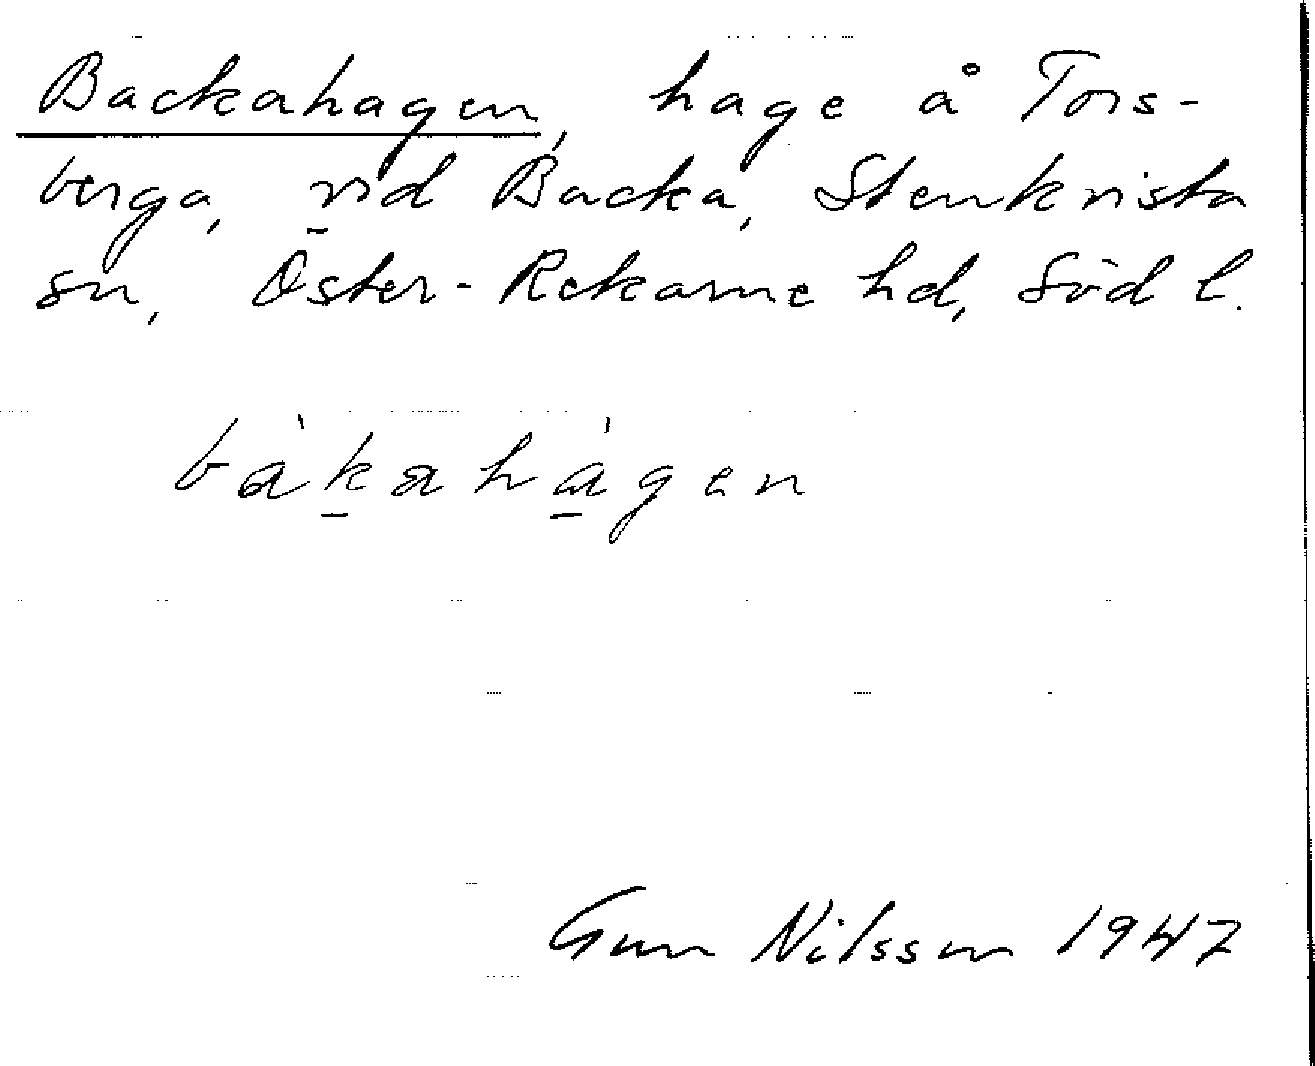 Backahagen, hage å Tors-
berga, vid Backa, Stenkvista
sn, Öster-Rekarne hd, Söd l.
bàkahágen
Gun Nilsson 1947